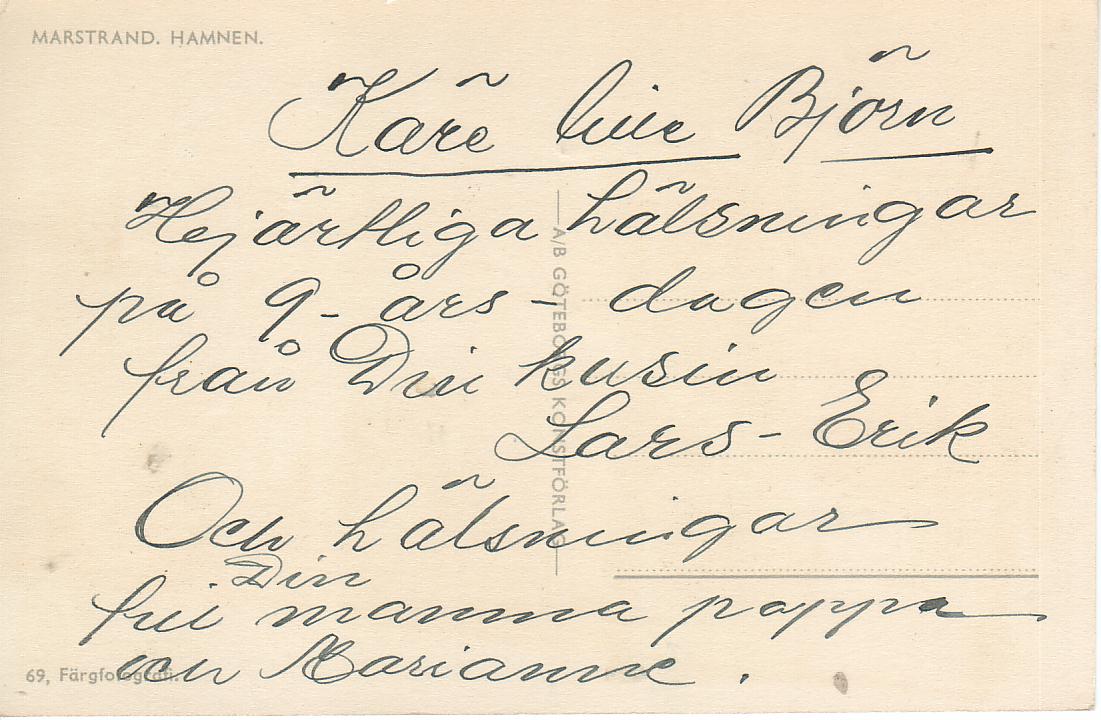 MARSTRAND. HAMNEN.
Käre lille Björn
Hejärtliga hälsningar
på 9-års-dagen
från Din kusin
Lars-Erik
Och hälsningar
Din
till mamma pappa
och Marianne.
A/B GÖTEBORGS KONSTFÖRLAG
69, Färgfotografi.